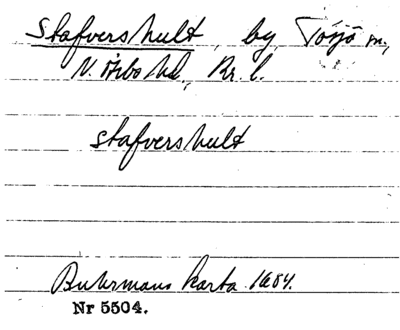 Stafvershult, by, Tosjö sn.,
N. Åsbo hd., Kr. l.
stafvershult
Buhrmans karta 1684.
Nr 5504.